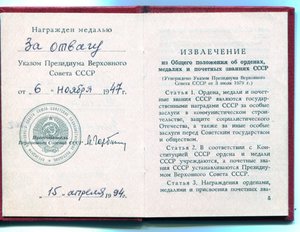 Награжден медалью
За отвагу
Указом Президиума Верховного
Совета СССР
от „6“ ноября 1947.
Президиума
Верховного Совета СССР
„15“ апреля 1994.
ИЗВЛЕЧЕНИЕ
из Общего положения об орденах,
медалях и почетных званиях СССР
(Утверждено Указом Президиума Верховного
Совета СССР от 3 июля 1979 г.)
Статья 1. Ордена, медали и почет-
ные звания СССР являются государ-
ственными наградами СССР за особые
заслуги в коммунистическом строи-
тельстве, защите социалистического
Отечества, а также за иные особые
заслуги перед Советским государством и
обществом.
Статья 2. В соответствии с Кон-
ституцией СССР ордена и медали
СССР учреждаются, а почетные зва-
ния СССР устанавливаются Президиу-
мом Верховного Совета СССР.
Статья 3. Награждения орденами,
медалями и присвоение почетных зва-
5